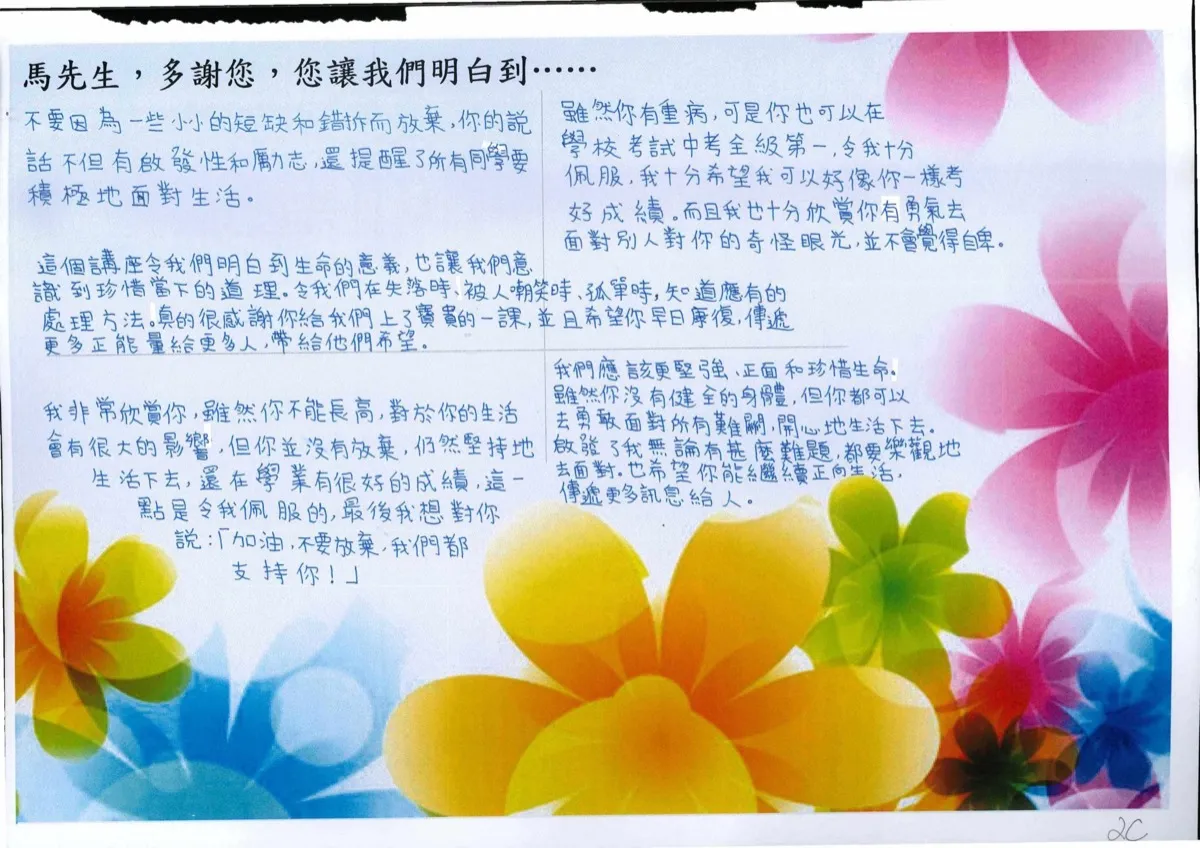 馬先生，多謝您，您讓我們明白到……
不要因為一些小小的短缺和錯拆而放棄，你的說
話不但有啟發性和勵志，還提醒了所有同學要
積極地面對生活。
雖然你有重病，可是你也可以在
學校考試中考全級第一，令我十分
佩服，我十分希望我可以好像你一樣考
好成績。而且我也十分欣賞你有勇氣去
面對別人對你的奇怪眼光，並不會覺得自卑。
這個講座令我們明白到生命的意義，也讓我們意
識到珍惜當下的道理。令我們在失落時、被人嘲笑時、孤單時，知道應有的
處理方法。真的很感謝你給我們上了寶貴的一課，並且希望你早日康復，傳遞
更多正能量給更多人，帶給他們希望。
我非常欣賞你，雖然你不能長高，對於你的生活
會有很大的影響，但你並沒有放棄，仍然堅持地
生活下去，還在學業有很好的成績，這一
點是令我佩服的，最後我想對你
說：「加油，不要放棄，我們都
支持你！」
我們應該更堅強、正面和珍惜生命。
雖然你沒有健全的身體，但你都可以
去勇敢面對所有難關，開心地生活下去。
啟發了我無論有甚麼難題，都要樂觀地
去面對。也希望你能繼續正向生活，
傳遞更多訊息給人。
2C